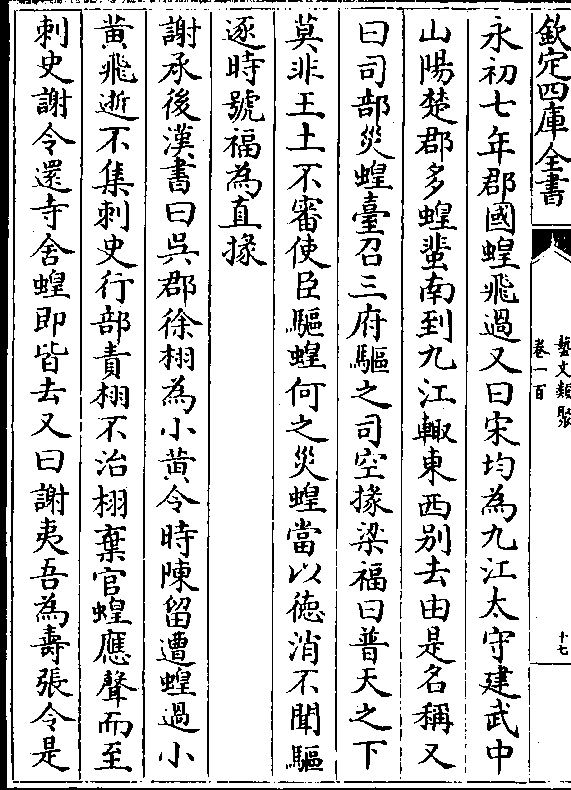 欽定四庫全書
藝文類聚
卷一百
十七
永初七年郡國蝗飛過又曰宋均為九江太守建武中
山陽楚郡多蝗蜚南到九江輙東西别去由是名稱又
曰司部災蝗臺召三府驅之司空掾梁福曰普天之下
莫非王土不審使臣驅蝗何之災蝗當以德消不聞驅
逐時號福為直掾
謝承後漢書曰吳郡徐栩為小黄令時陳留遭蝗過小
黄飛逝不集刺史行部責栩不治栩棄官蝗應聲而至
刺史謝令還寺舍蝗即皆去又曰謝夷吾為壽張令是